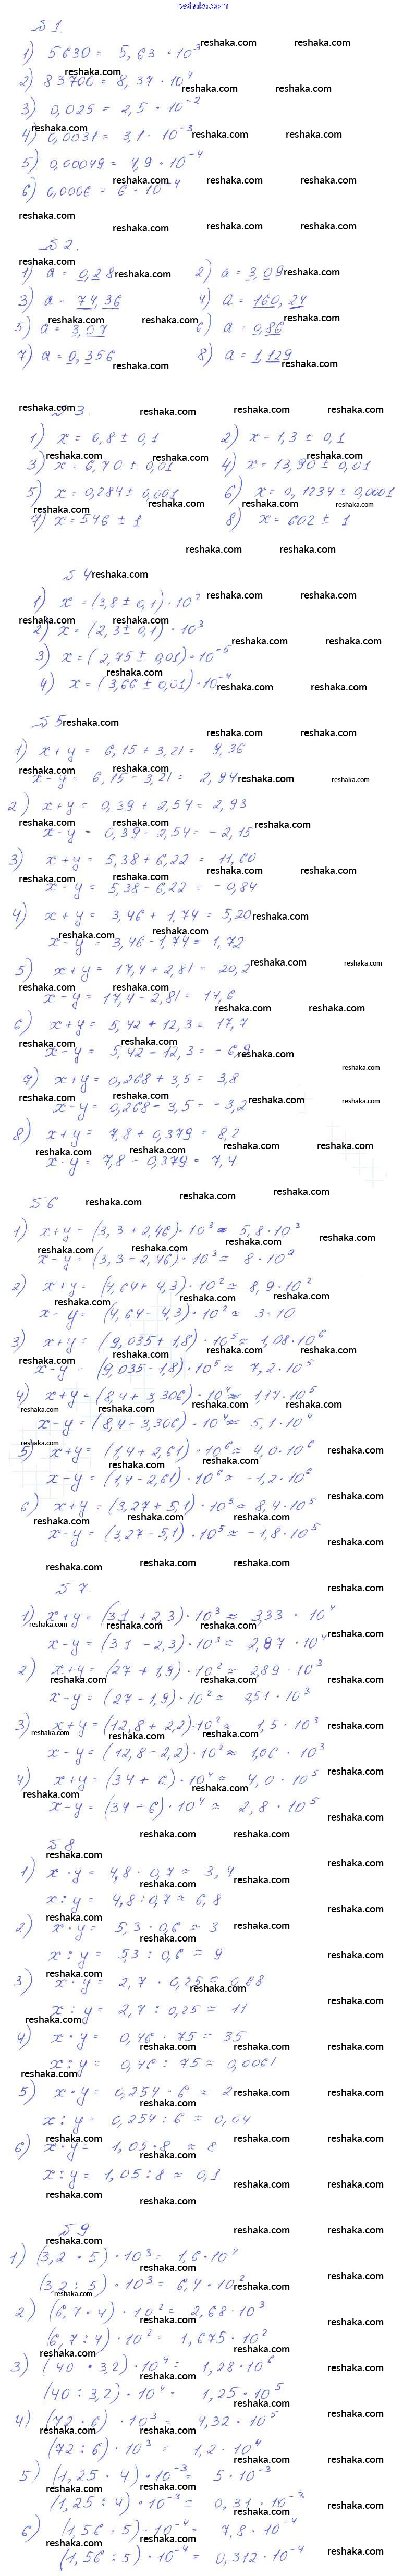 reshaka.com
№ 1.
1) 5630 = 5,63 · 10³
2) 83700 = 8,37 · 10⁴
3) 0,025 = 2,5 · 10⁻²
4) 0,0031 = 3,1 · 10⁻³
5) 0,00049 = 4,9 · 10⁻⁴
6) 0,0006 = 6 · 10⁻⁴
№ 2.
1) a = 0,28 2) a = 3,09
3) a = 74,36 4) a = 160,24
5) a = 3,07 6) a = 0,86
7) a = 0,356 8) a = 1,129
№ 3.
1) x = 0,8 ± 0,1 2) x = 1,3 ± 0,1
3) x = 6,70 ± 0,01 4) x = 13,90 ± 0,01
5) x = 0,284 ± 0,001 6) x = 0,1234 ± 0,0001
7) x = 546 ± 1 8) x = 602 ± 1
№ 4
1) x = (3,8 ± 0,1) · 10²
2) x = (2,3 ± 0,1) · 10³
3) x = (2,75 ± 0,01) · 10⁻⁵
4) x = (3,66 ± 0,01) · 10⁻⁴
№ 5
1) x + y = 6,15 + 3,21 = 9,36
x - y = 6,15 - 3,21 = 2,94
2) x + y = 0,39 + 2,54 = 2,93
x - y = 0,39 - 2,54 = - 2,15
3) x + y = 5,38 + 6,22 = 11,60
x - y = 5,38 - 6,22 = - 0,84
4) x + y = 3,46 + 1,74 = 5,20
x - y = 3,46 - 1,74 = 1,72
5) x + y = 17,4 + 2,81 = 20,2
x - y = 17,4 - 2,81 = 14,6
6) x + y = 5,42 + 12,3 = 17,7
x - y = 5,42 - 12,3 = - 6,9
7) x + y = 0,268 + 3,5 = 3,8
x - y = 0,268 - 3,5 = - 3,2
8) x + y = 7,8 + 0,379 = 8,2
x - y = 7,8 - 0,379 = 7,4
№ 6
1) x + y = (3,3 + 2,46) · 10³ ≈ 5,8 · 10³
x - y = (3,3 - 2,46) · 10³ ≈ 8 · 10²
2) x + y = (4,64 + 4,3) · 10² ≈ 8,9 · 10²
x - y = (4,64 - 4,3) · 10² ≈ 3 · 10
3) x + y = (9,035 + 1,8) · 10⁵ ≈ 1,08 · 10⁶
x - y = (9,035 - 1,8) · 10⁵ ≈ 7,2 · 10⁵
4) x + y = (8,4 + 3,306) · 10⁴ ≈ 1,17 · 10⁵
x - y = (8,4 - 3,306) · 10⁴ ≈ 5,1 · 10⁴
5) x + y = (1,4 + 2,61) · 10⁶ ≈ 4,0 · 10⁶
x - y = (1,4 - 2,61) · 10⁶ ≈ -1,2 · 10⁶
6) x + y = (3,27 + 5,1) · 10⁵ ≈ 8,4 · 10⁵
x - y = (3,27 - 5,1) · 10⁵ ≈ - 1,8 · 10⁵
№ 7.
1) x + y = (31 + 2,3) · 10³ ≈ 3,33 · 10⁴
x - y = (31 - 2,3) · 10³ ≈ 2,87 · 10⁴
2) x + y = (27 + 1,9) · 10² ≈ 2,89 · 10³
x - y = (27 - 1,9) · 10² ≈ 2,51 · 10³
3) x + y = (12,8 + 2,2) · 10² ≈ 1,5 · 10³
x - y = (12,8 - 2,2) · 10² ≈ 1,06 · 10³
4) x + y = (34 + 6) · 10⁴ ≈ 4,0 · 10⁵
x - y = (34 - 6) · 10⁴ ≈ 2,8 · 10⁵
№ 8
1) x · y = 4,8 · 0,7 ≈ 3,4
x : y = 4,8 : 0,7 ≈ 6,8
2) x · y = 5,3 · 0,6 ≈ 3
x : y = 5,3 : 0,6 ≈ 9
3) x · y = 2,7 · 0,25 ≈ 0,68
x : y = 2,7 : 0,25 ≈ 11
4) x · y = 0,46 · 75 ≈ 35
x : y = 0,46 : 75 ≈ 0,0061
5) x · y = 0,254 · 6 ≈ 2
x : y = 0,254 : 6 ≈ 0,04
6) x · y = 1,05 · 8 ≈ 8
x : y = 1,05 : 8 ≈ 0,1
№ 9
1) (3,2 · 5) · 10³ = 1,6 · 10⁴
(3,2 : 5) · 10³ = 6,4 · 10²
2) (6,7 · 4) · 10² = 2,68 · 10³
(6,7 : 4) · 10² = 1,675 · 10²
3) (40 · 3,2) · 10⁴ = 1,28 · 10⁶
(40 : 3,2) · 10⁴ = 1,25 · 10⁵
4) (72 · 6) · 10³ = 4,32 · 10⁵
(72 : 6) · 10³ = 1,2 · 10⁴
5) (1,25 · 4) · 10⁻³ = 5 · 10⁻³
(1,25 : 4) · 10⁻³ = 0,31 · 10⁻³
6) (1,56 · 5) · 10⁻⁴ = 7,8 · 10⁻⁴
(1,56 : 5) · 10⁻⁴ = 0,312 · 10⁻⁴